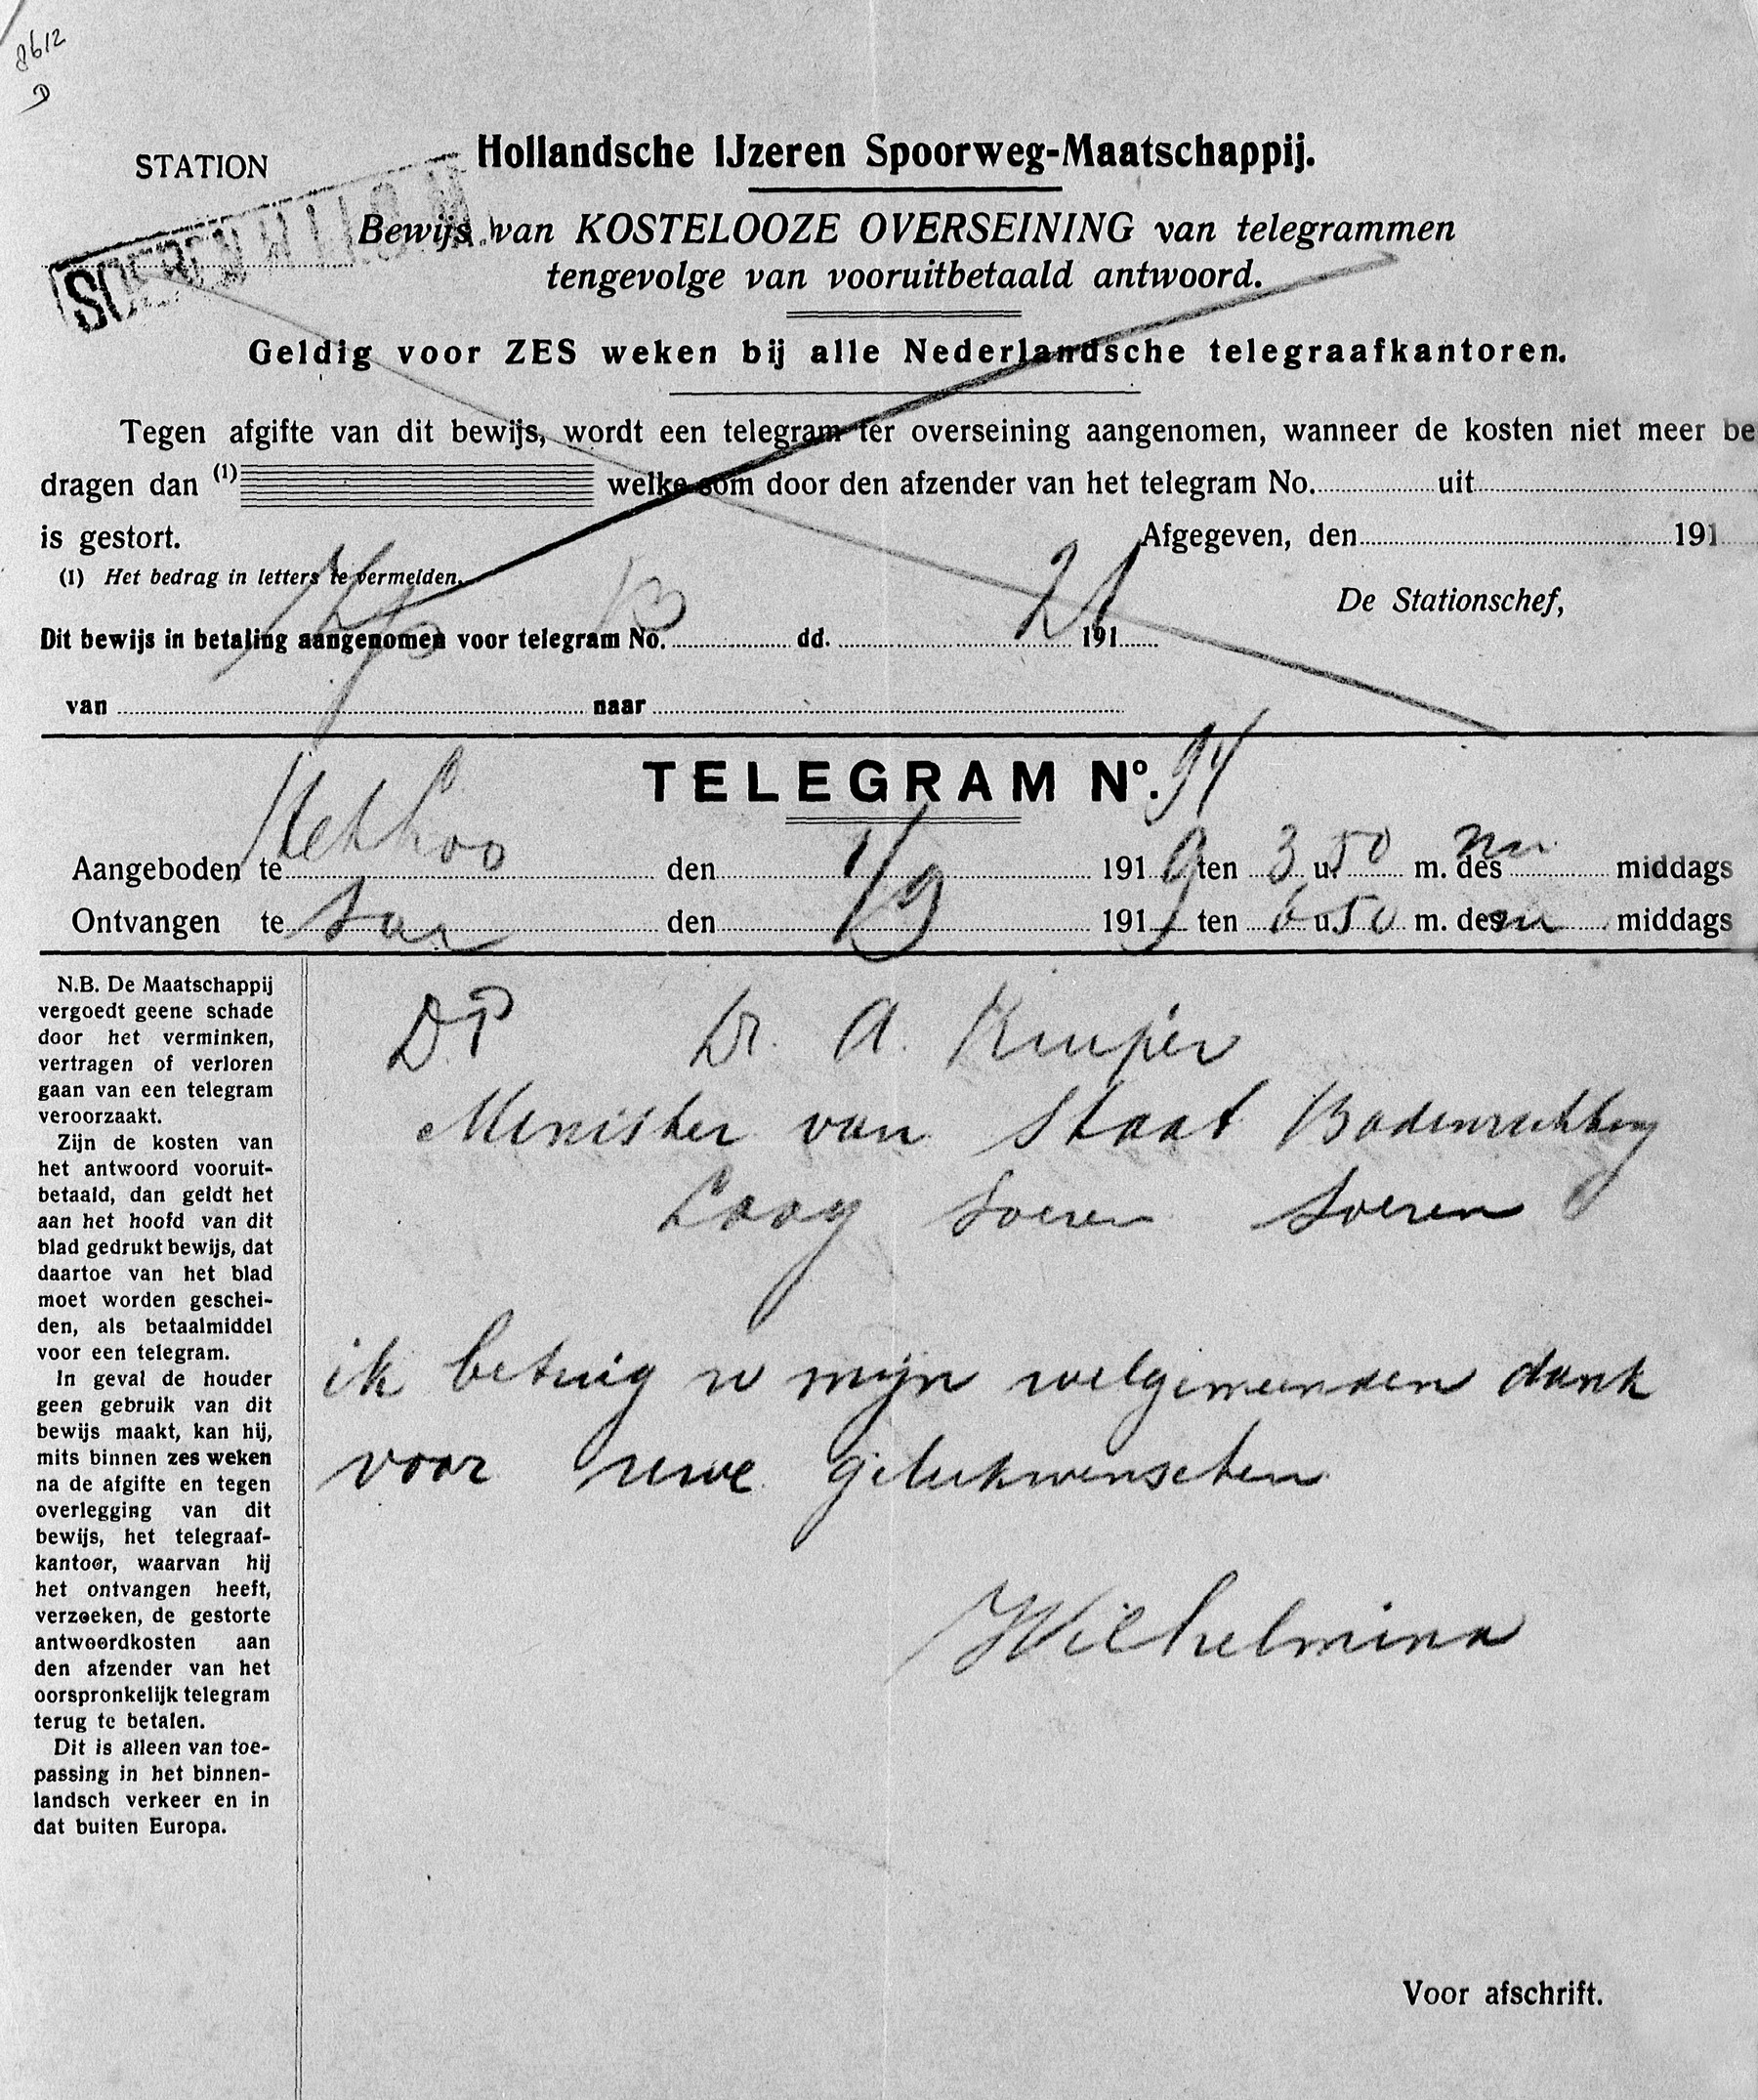 8612
D
STATION
Hollandsche IJzeren Spoorweg-Maatschappij.
Bewijs van KOSTELOOZE OVERSEINING van telegrammen
tengevolge van vooruitbetaald antwoord.
Geldig voor ZES weken bij alle Nederlandsche telegraafkantoren.
Tegen afgifte van dit bewijs, wordt een telegram ter overseining aangenomen, wanneer de kosten niet meer be
dragen dan (1) welke som door den afzender van het telegram No. uit
is gestort.
Afgegeven, den 191
(1) Het bedrag in letters te vermelden.
De Stationschef,
13 21
Dit bewijs in betaling aangenomen voor telegram No. dd. 191
van naar
TELEGRAM No. 94
Aangeboden te Het Loo den 1/9 1919 ten 3 u. 50 m. des nm middags
Ontvangen te Sar den 1/9 1919 ten 6 u. 50 m. des nm middags
N.B. De Maatschappij
vergoedt geene schade
door het verminken,
vertragen of verloren
gaan van een telegram
veroorzaakt.
Zijn de kosten van
het antwoord vooruit-
betaald, dan geldt het
aan het hoofd van dit
blad gedrukt bewijs, dat
daartoe van het blad
moet worden geschei-
den, als betaalmiddel
voor een telegram.
In geval de houder
geen gebruik van dit
bewijs maakt, kan hij,
mits binnen zes weken
na de afgifte en tegen
overlegging van dit
bewijs, het telegraaf-
kantoor, waarvan hij
het ontvangen heeft,
verzoeken, de gestorte
antwoordkosten aan
den afzender van het
oorspronkelijk telegram
terug te betalen.
Dit is alleen van toe-
passing in het binnen-
landsch verkeer en in
dat buiten Europa.
DP Dr. A. Kuuper
Minister van Staat
Laag Soeren Soeren
ik betuig u mijn welgemeenden dank
voor uwe gelukwenschen
Wilhelmina
Voor afschrift.